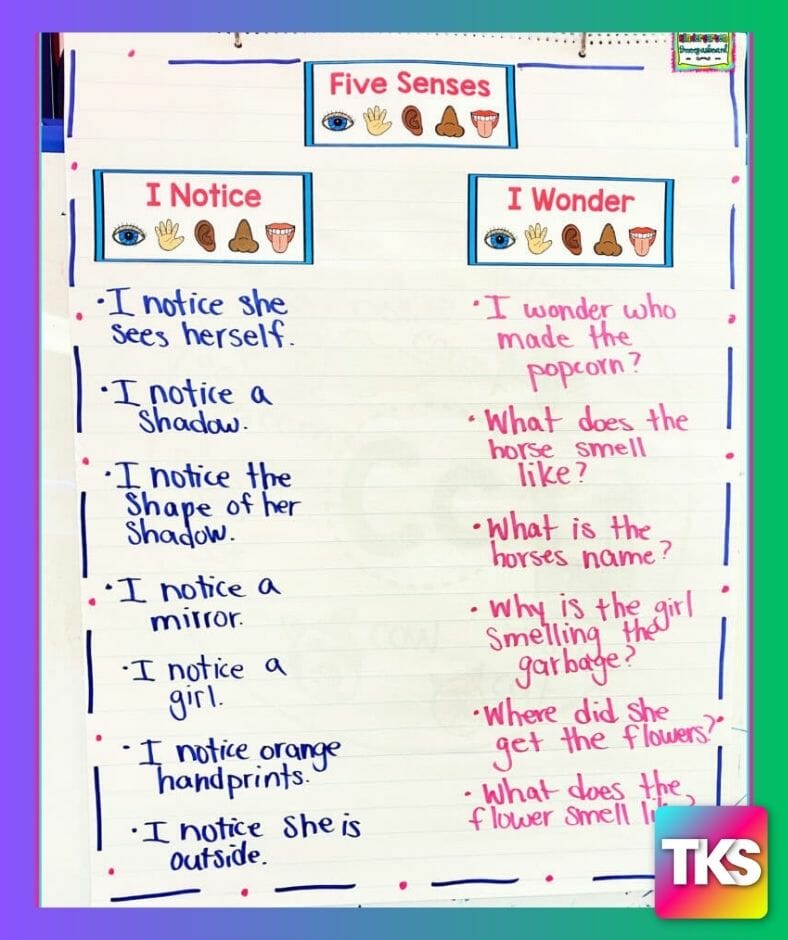 Five Senses
I Notice
• I notice she
sees herself.
• I notice a
shadow.
• I notice the
shape of her
shadow.
• I notice a
mirror.
• I notice a
girl.
• I notice orange
handprints.
• I notice she is
outside.
I Wonder
• I wonder who
made the
popcorn?
• What does the
horse smell
like?
• What is the
horses name?
• Why is the girl
smelling the
garbage?
• Where did she
get the flowers?
• What does the
flower smell
TKS